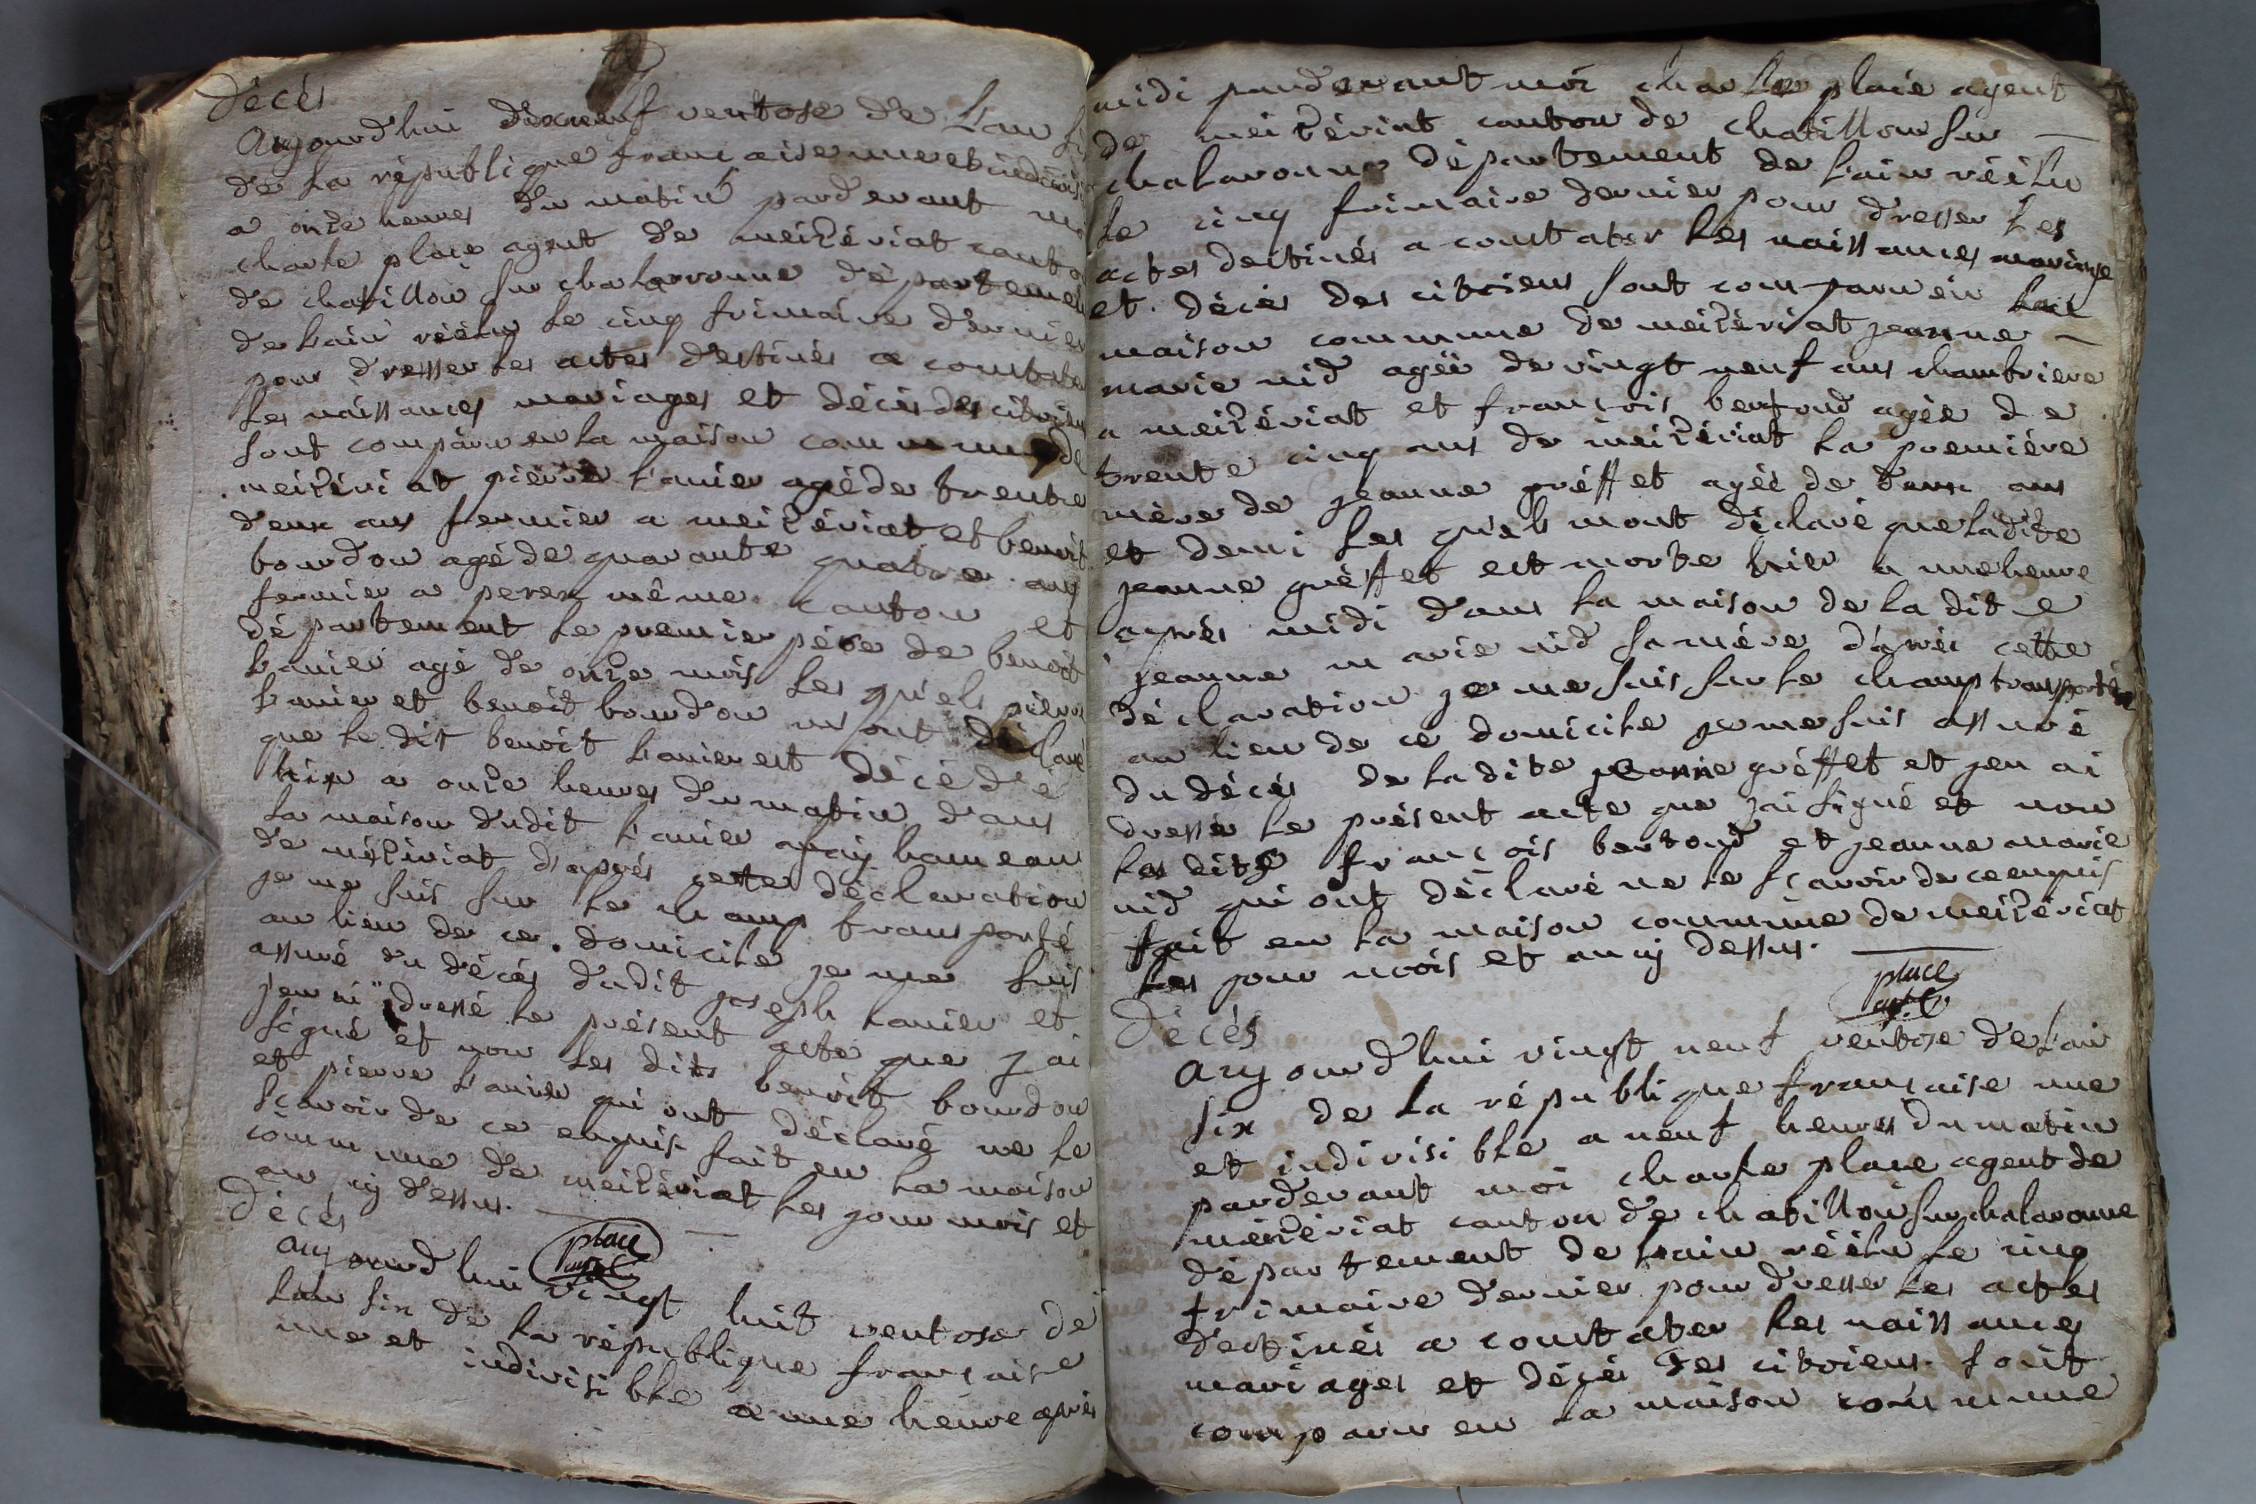 Décés
Aujourd'hui dixneuf ventose de L'an si
de La république francaise une et indivis
a onze heures du matin pardevant mo
charle place agent de meizériat canto
de chatillon sur chalaronne départemen
de L'ain réélu Le cinq frimaire dernier
pour dresser Les actes destinés a constater
Les naissances mariages et décés des citoiens
sont comparu en La maison commune de
meizériat pierre Lanier agé de trente
deux ans fermier a meizériat et benoit
bourdon agé de quarante quatre ans
fermier a perex même canton et
département Le premier pére de benoit
Lanier agé de onze mois Les quels pierre
Lanier et benoit bourdon m'ont déclaré
que Le dit benoit Lanier est décédé
hier a onze heures du matin dans
La maison dudit Lanier hameau
de méziriat d'aprés cette déclaration
je me suis sur Le champ transporté
au lieu de ce domicile je me suis
assuré du décés dudit joseph Lanier et
jen ai dressé Le présent acte que j'ai
signé et non Les dits benoit bourdon
et pierre Lanier qui ont déclaré ne Le
scavoir de ce enquis fait en La maison
commune de meizériat Les jour mois et
an cy dessus.
place
Décés
Aujourd'hui vingt huit ventose de
L'an six de La république francaise
une et indivisible a une heure aprés
midi pardevant moi charle place agent
de meizériat canton de chatillon sur
chalaronne département de L'ain réélu
Le cinq frimaire dernier pour dresser Les
actes destinés a constater Les naissances mariage
et décés des citoiens sont comparu en La
maison commune de meizériat jeanne
marie nid agée de vingt neuf ans chambriere
a meizériat et francois bertond agée de
trente cinq ans de meizériat La premiére
mére de jeanne gréffet agée de deux ans
et demi Les quels mont déclaré que Ladite
jeanne gréffet est morte hier a une heure
aprés midi dans La maison de La dite
jeanne marie nid sa mére d'aprés cette
déclaration je me suis sur Le champ transporté
au lieu de ce domicile je me suis assuré
du décés de La dite jeanne gréffet et jen ai
dressé Le présent acte que j'ai signé et non
Les dits francois bertond et jeanne marie
nid qui ont déclaré ne Le scavoir de ce enquis
fait en La maison commune de meizériat
Les jour mois et an cy dessus.
place
Décés
Aujourd'hui vingt neuf ventose de L'an
six de La république francaise une
et indivisible a neuf heures du matin
pardevant moi charle place agent de
meizériat canton de chatillon sur chalaronne
département de L'ain réélu Le cinq
frimaire dernier pour dresser Les actes
destinés a constater Les naissances
mariages et décés des citoiens sont
comparu en La maison commune